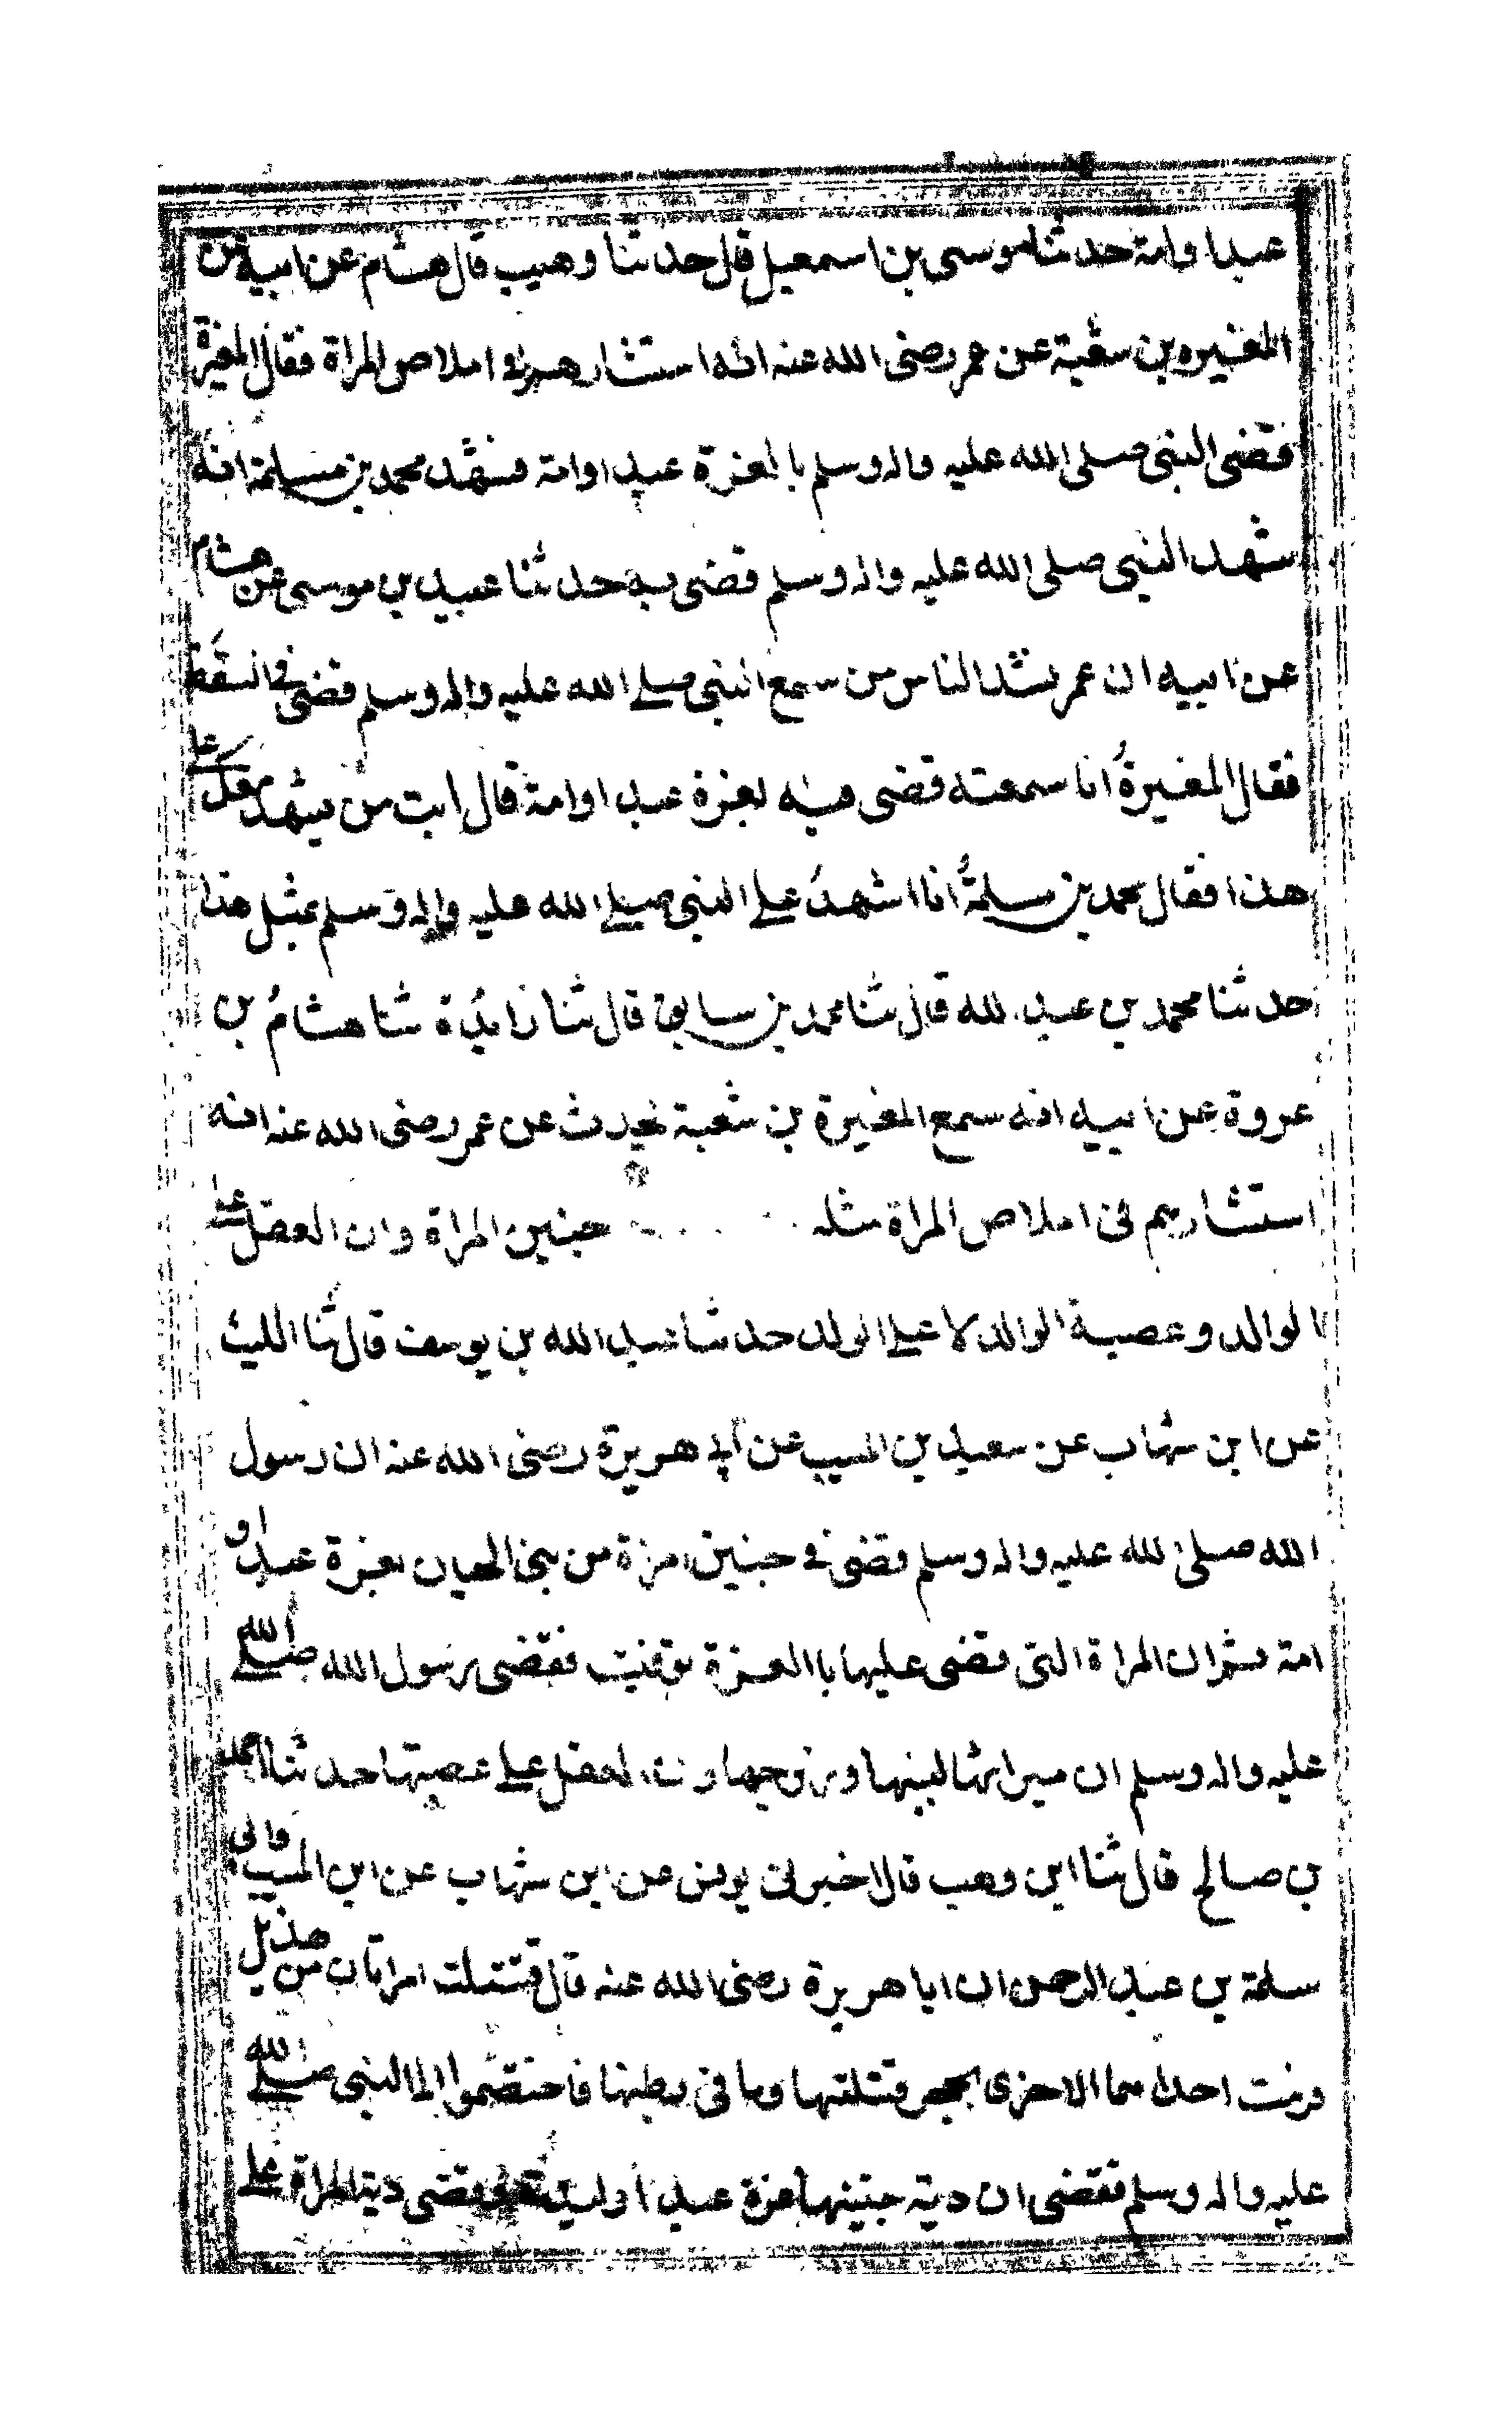 عبد او امة حدثنا موسى بن اسمعيل قال حدثنا وهيب قال هشام عن ابيه عن
المغيره بن شعبة عن عمر رضى الله عنه انه استشارهم في املاص المراة فقال المغيرة
فقضى النبى صلى الله عليه واله وسلم بالغرة عبد او امة فشهد محمد بن مسلمة انه
شهد النبي صلى الله عليه واله وسلم قضى به حدثنا عبيد بن موسى عن هشام
عن ابيه ان عمر نشد الناس من سمع النبى صلى الله عليه واله وسلم قضى في السقط
فقال المغيرة انا سمعته قضى فيه بغرة عبد او امة قال ايت من يشهد معك على
هذا فقال محمد بن مسلمة انا اشهد على النبى صلى الله عليه واله وسلم بمثل هذا
حدثنا محمد بن عبد الله قال ثنا محمد بن سابق قال ثنا زائدة ثنا هشام بن
عروة عن ابيه انه سمع المغيرة بن شعبة يحدث عن عمر رضى الله عنه انه
استشارهم فى املاص المراة مثله جنين المراة وان العقل على
الوالد وعصبة الوالد لا على الولد حدثنا عبد الله بن يوسف قال ثنا الليث
عن ابن شهاب عن سعيد بن المسيب عن أبي هريرة رضى الله عنه ان رسول
الله صلى الله عليه واله وسلم قضى في جنين امراة من بنى الحيان بغرة عبد او
امة ثم ان المراة التى قضى عليها باالغرة توفيت فقضى رسول الله صلى الله
عليه واله وسلم ان ميراثها لبنيها وزوجها وان العقل على عصبتها حدثنا احمد
بن صالح قال ثنا ابن وهب قال اخبرنى يونس عن ابن شهاب عن ابن المسيب وابي
سلمة بن عبد الرحمن ان ابا هريرة رضى الله عنه قال قتتلت امراتان من هذيل
فرمت احداهما الاخرى بحجر قتلتها وما فى بطنها فاختصموا الى النبى صلى الله
عليه واله وسلم فقضى ان دية جنينها غرة عبد أو وليدة وقضى دية المراة على